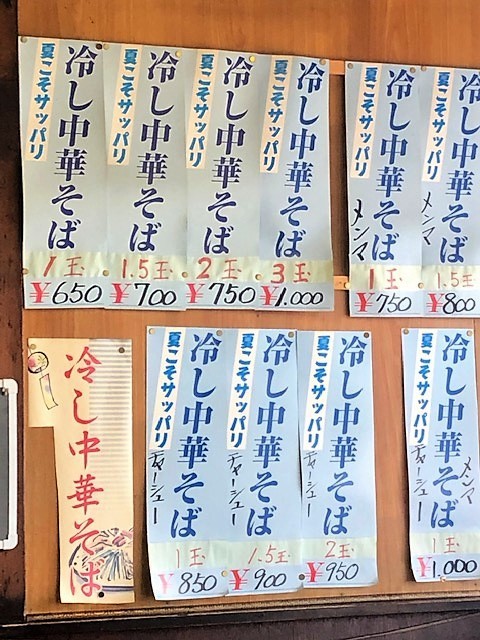 冷し中華そば
夏こそサッパリ
1玉
¥650
冷し中華そば
夏こそサッパリ
1.5玉
¥700
冷し中華そば
夏こそサッパリ
2玉
¥750
冷し中華そば
夏こそサッパリ
3玉
¥1.000
冷し中華そば
夏こそサッパリ
メンマ
1玉
¥750
冷し中華そば
夏こそサッパリ
メンマ
1.5玉
¥800
冷し中華そば
冷し中華そば
夏こそサッパリ
チャーシュー
1玉
¥850
冷し中華そば
夏こそサッパリ
チャーシュー
1.5玉
¥900
冷し中華そば
夏こそサッパリ
チャーシュー
2玉
¥950
冷し中華そば
夏こそサッパリ
メンマ
チャーシュー
1玉
¥1.000